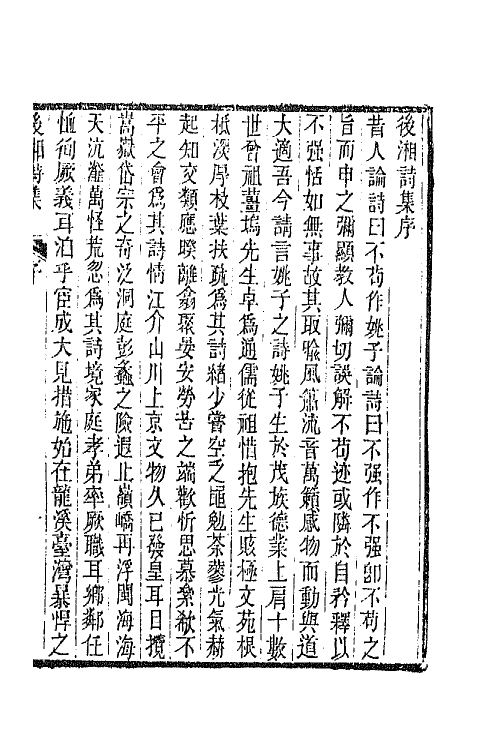 後湘詩集序
昔人論詩曰不苟作姚子論詩曰不强作不强卽不苟之
旨而申之彌顯教人彌切誤解不苟迹或隣於自矜釋以
不强恬如無事故其取喩風簫流音萬籟感物而動與道
大適吾今請言姚子之詩姚子生於茂族德業上肩十數
世曾祖薑塢先生卓爲通儒從祖惜抱先生賅極文苑根
柢深厚枝葉扶疏爲其詩緒少嘗空乏黽勉荼蓼光氣赫
起知交類應暌離翕聚晏安勞苦之端歡忻思慕樂欷不
平之會爲其詩情江介山川上京文物久已發皇耳目攬
嵩嶽岱宗之奇泛洞庭彭蠡之險遐止嶺嶠再浮閩海海
天沆瀣萬怪荒忽爲其詩境家庭孝弟率厥職耳鄉鄰任
恤徇厥義耳洎乎宦成大見措施始在龍溪臺灣暴悍之
後湘詩集 序